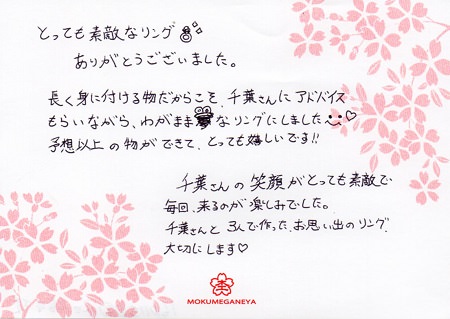 とっても素敵なリング
ありがとうございました。
長く身に付ける物だからこそ、千葉さんにアドバイス
もらいながら、わがままなリングにしました♡
予想以上の物ができて、とっても嬉しいです!!
千葉さんの笑顔がとっても素敵で
毎回、来るのが楽しみでした。
千葉さんと3人で作った、お思い出のリング、
大切にします♡
MOKUMEGANEYA